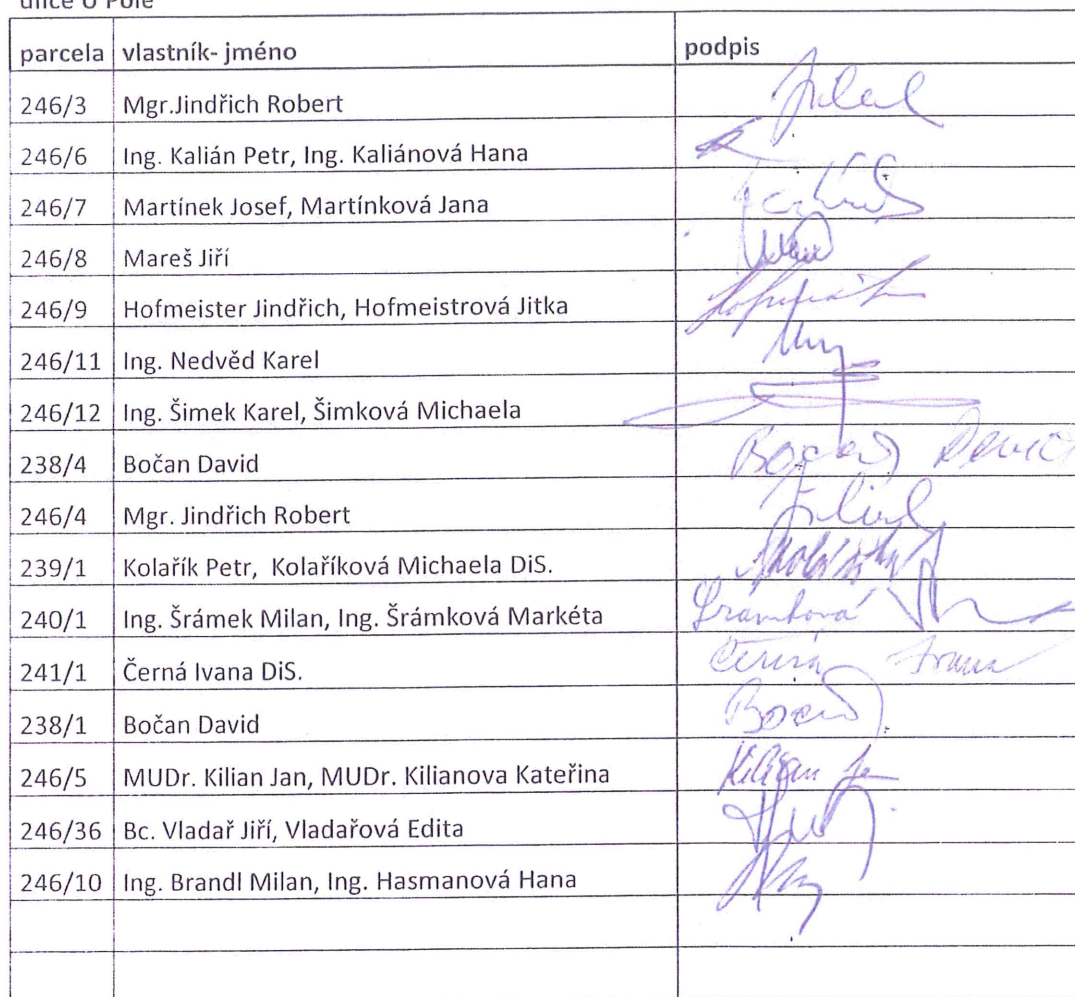 ulice U Pole
parcela vlastník- jméno podpis
246/3 Mgr.Jindřich Robert
246/6 Ing. Kalián Petr, Ing. Kaliánová Hana
246/7 Martínek Josef, Martínková Jana
246/8 Mareš Jiří
246/9 Hofmeister Jindřich, Hofmeistrová Jitka
246/11 Ing. Nedvěd Karel
246/12 Ing. Šimek Karel, Šimková Michaela
238/4 Bočan David Bočan David
246/4 Mgr. Jindřich Robert
239/1 Kolařík Petr, Kolaříková Michaela DiS.
240/1 Ing. Šrámek Milan, Ing. Šrámková Markéta Šrámková
241/1 Černá Ivana DiS. Černá Ivana
238/1 Bočan David Bočan
246/5 MUDr. Kilian Jan, MUDr. Kilianova Kateřina Kilian
246/36 Bc. Vladař Jiří, Vladařová Edita
246/10 Ing. Brandl Milan, Ing. Hasmanová Hana